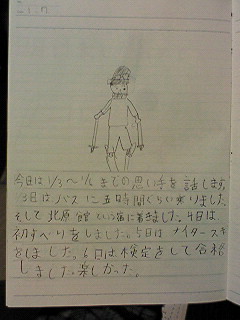 今日は1/3～1/6までの思い出を話します。
3日はバスに五時間ぐらい乗りました。
そして北原館という宿に着きました。4日は
初すべりをしました。5日はナイタースキー
をしました。6日は検定をして合格
しました。楽しかった。